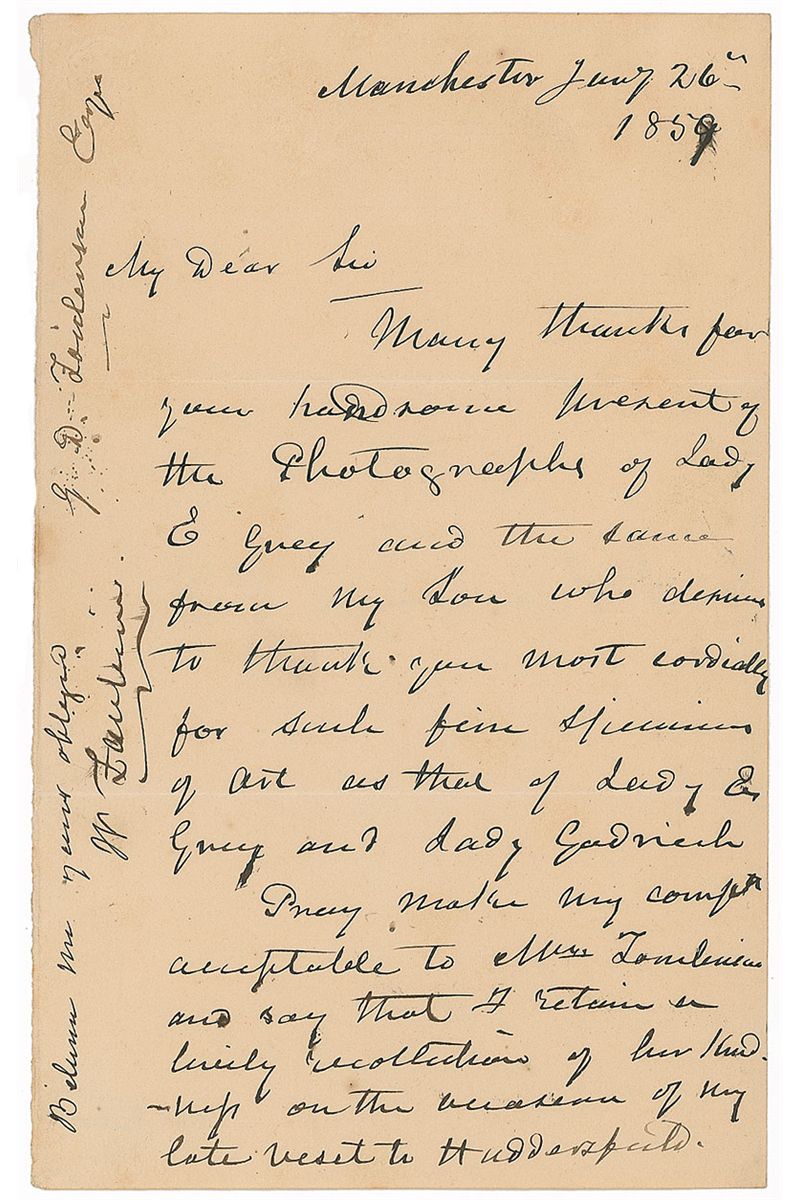 Manchester Jany 26th
1859
My Dear Sir
Many thanks for
your handsome present of
the Photographs of Lady
E Grey and the same
from my Son who desires
to thank you most cordially
for such fine specimens
of Art as that of Lady E
Grey and Lady Godrich
Pray make my compts
acceptable to Mrs Tomlinson
and say that I retain a
lively recollection of her kind-
-ness on the occasion of my
late veset to Huddersfield.
Believe me yours obliged
W
G. D. Tomlinson Esqr